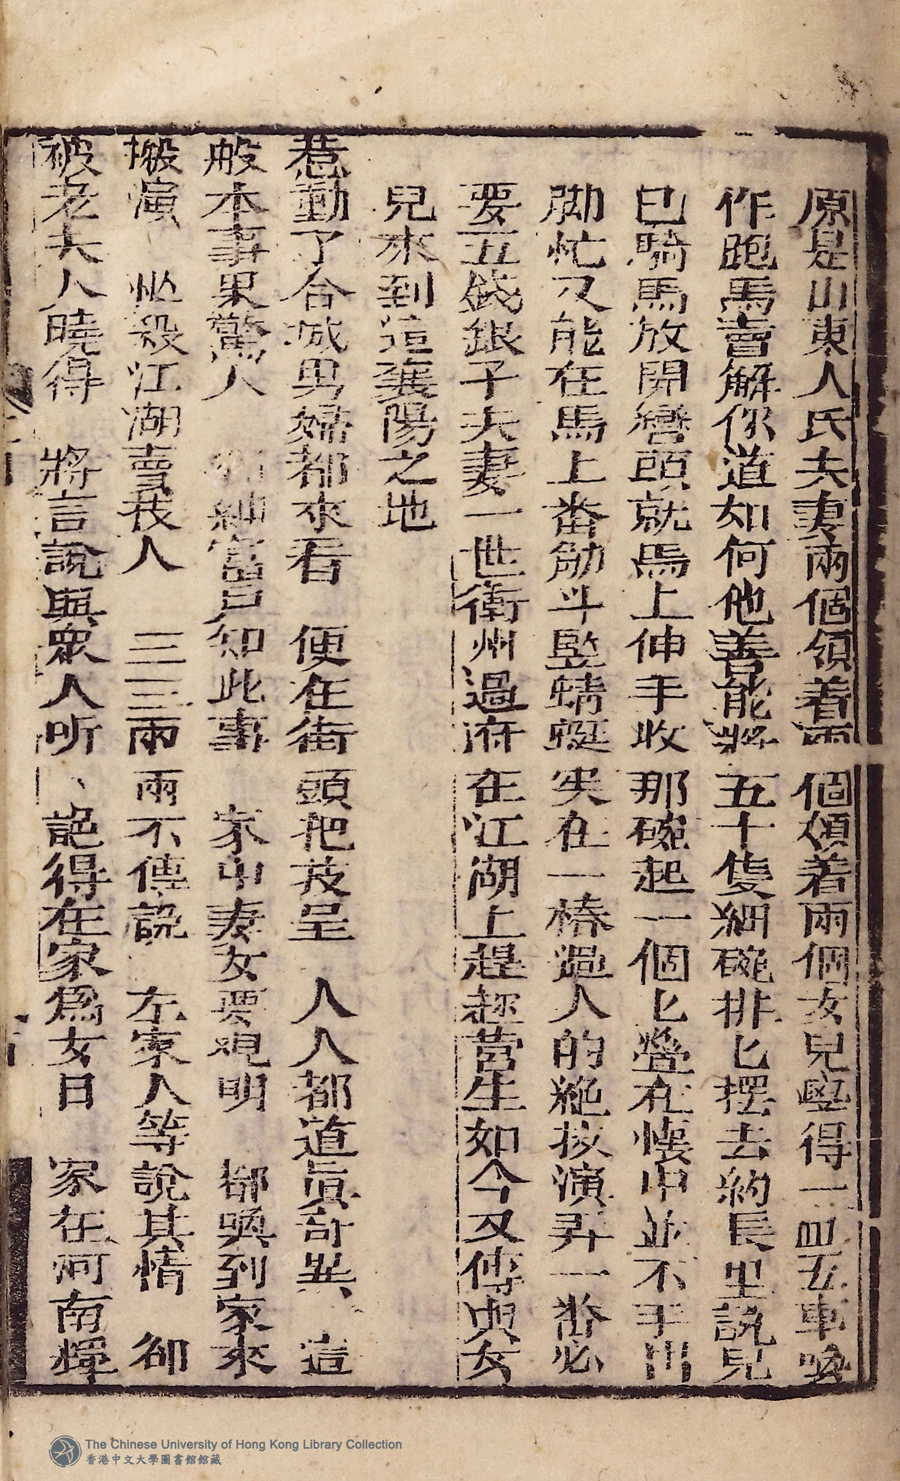 原是山東人氏夫妻兩個領着兩個領着兩個女兒學得一血五車喚
作跑馬賣解你道如何他善能將五十隻細碗排匕擺去約長里說兒
已騎馬放開轡頭就馬上伸手收那碗起一個匕疊在懷中並不手出
脚忙又能在馬上番觔斗竪蜻蜓実在一樁過人的絶技演弄一番必
要五錢銀子夫妻一世衛州過府在江湖上趕趂营生如今又傳與女
兒來到這襄陽之地
惹動了合城男婦都來看 便在街頭把技呈 人人都道眞奇異 這
般本事果驚人 紳富戸知此事 家中妻女要观明 都喚到家來
搬演 忙殺江湖賣技人 三三兩兩不傳說 左家人等說其情 卻
被老夫人曉得 將言說與衆人听 說得在家爲女日 家在河南輝
The Chinese University of Hong Kong Library Collection
香港中文大學圖書館館藏